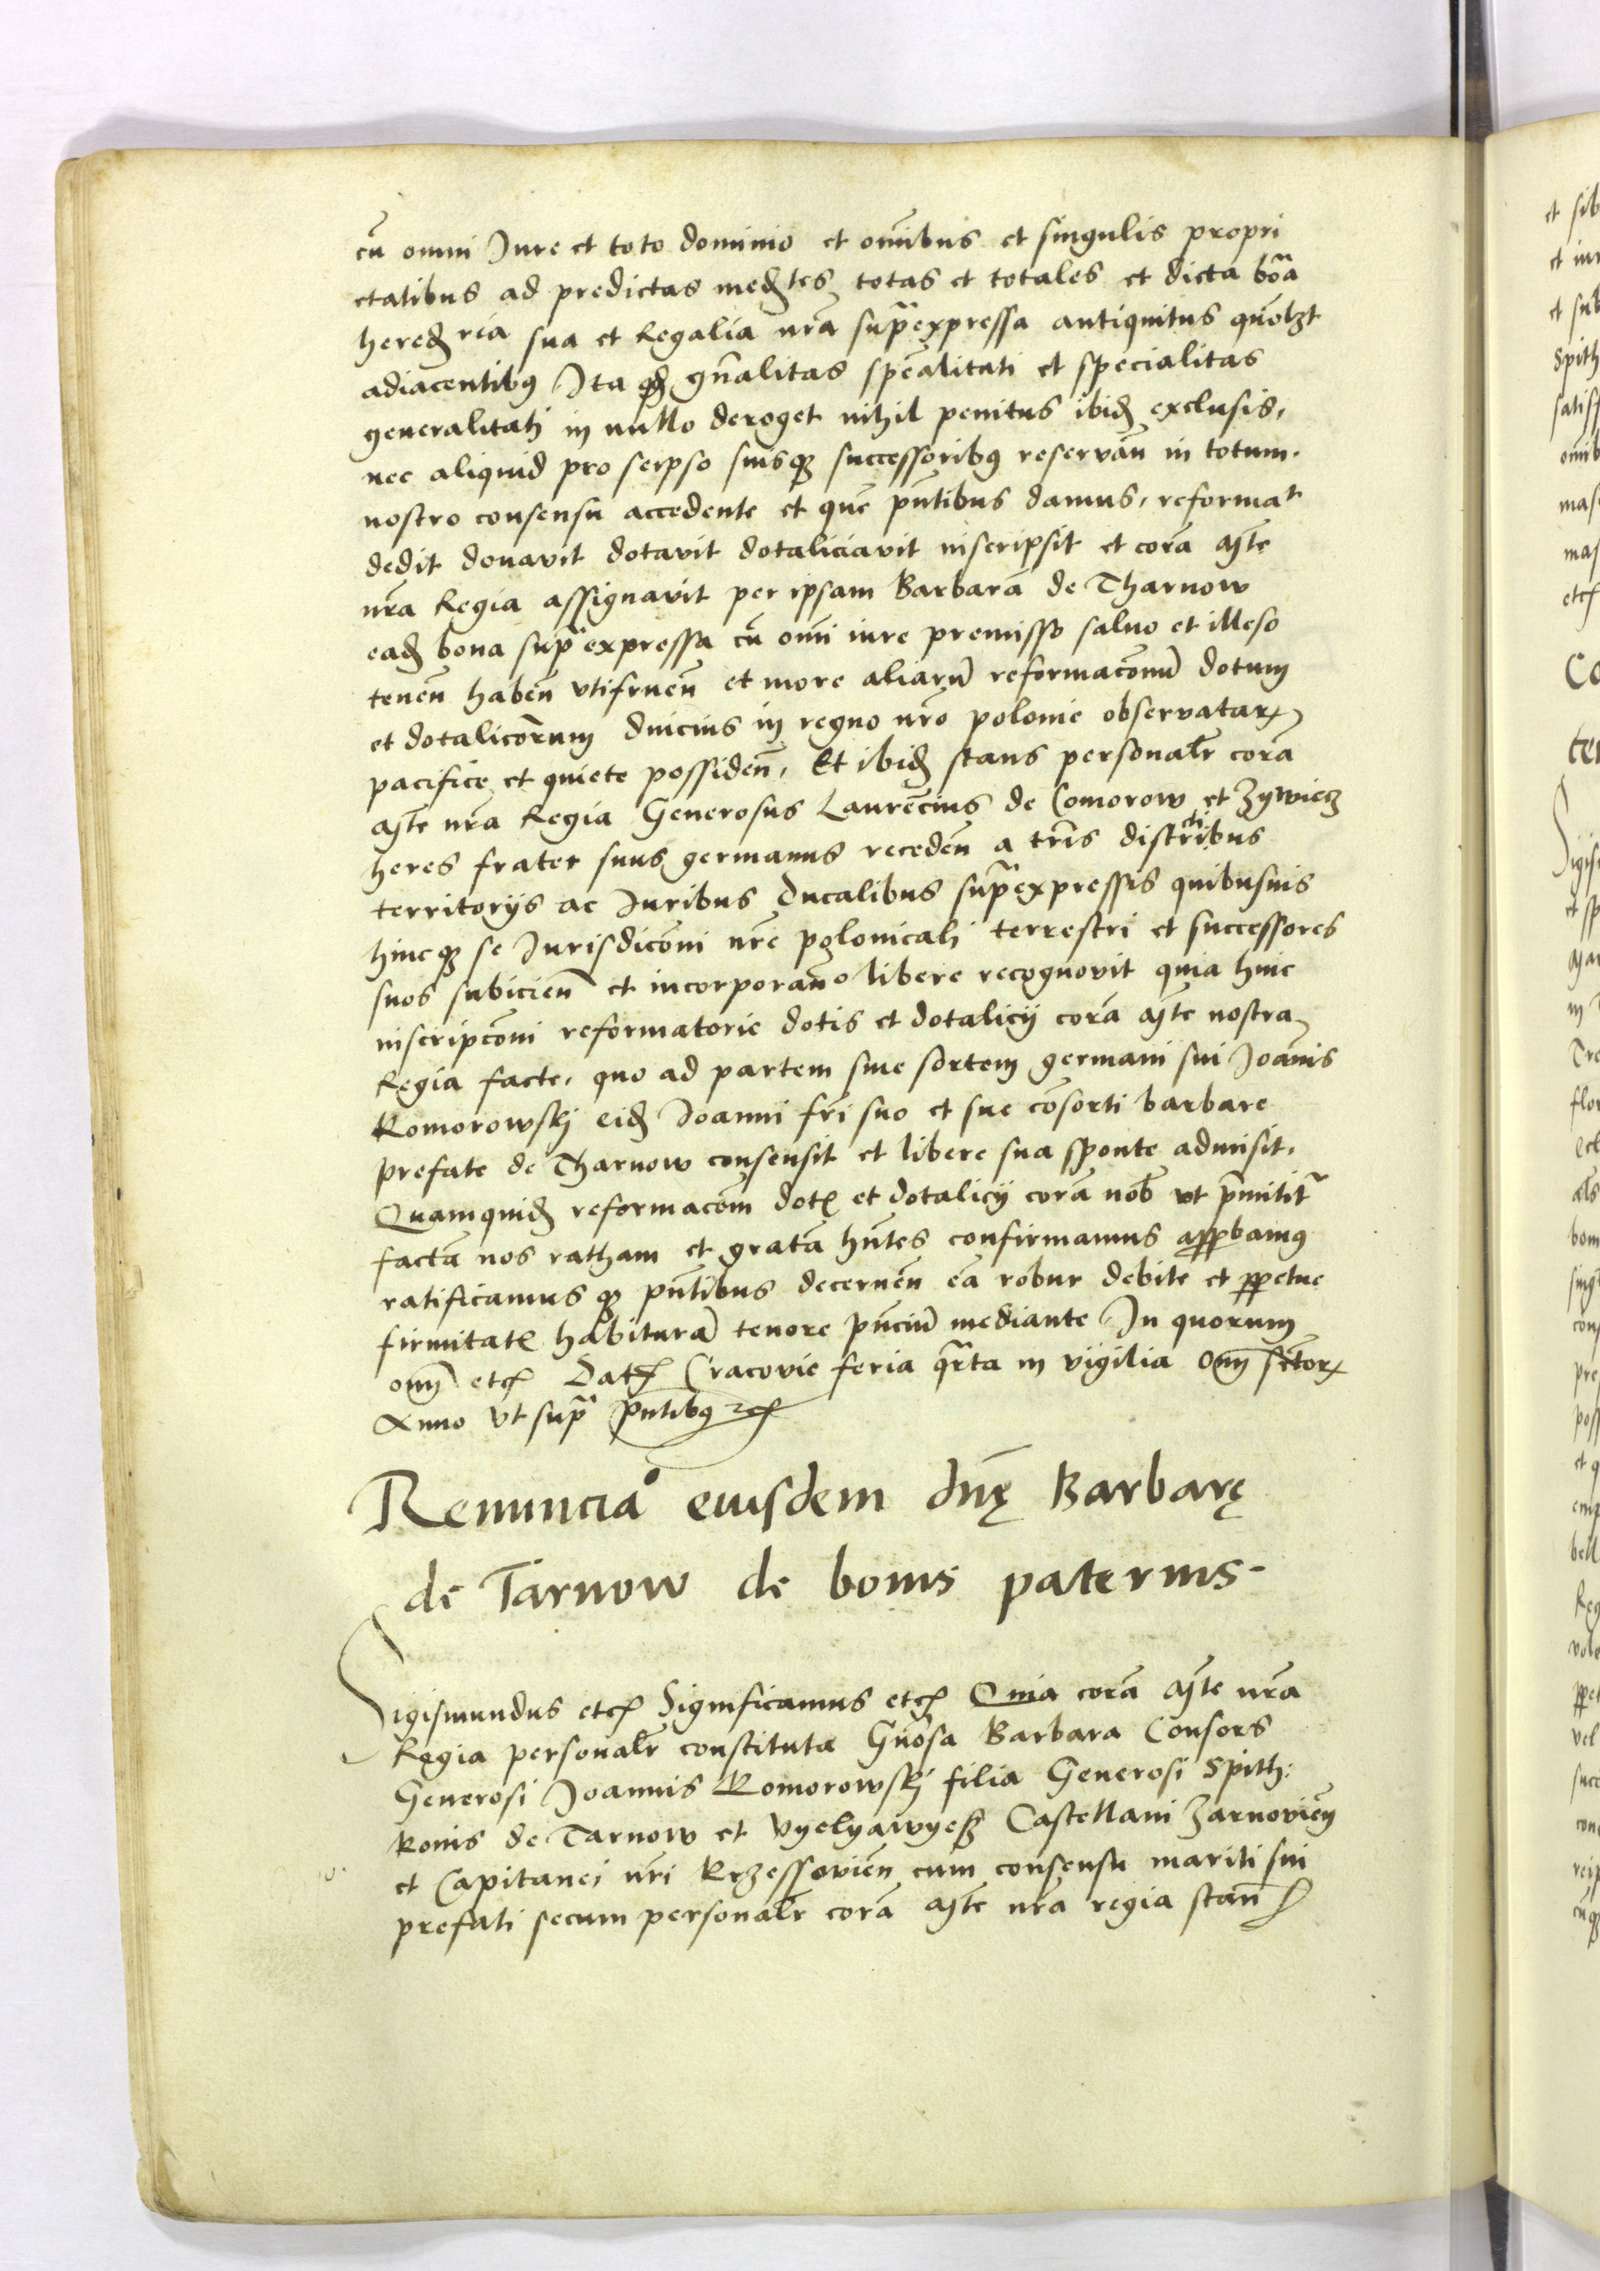 cū omni Jure et toto dominio et om̄ibus et singulis propri
etatibus ad predictas medtes totas et totales et dicta bōa
hered ria sua et Regalia nr̄a supraexpressa antiquitus quōlzt
adiacentibꝰ Ita qd gn̄alitas spēalitati et specialitas
generalitati in nullo deroget nihil penitus ibid exclusis,
nec aliquid pro seipso suisqꝫ successoribꝰ reservān in totum.
nostro consensu accedente et quē pn̄tibus damus, reformat
dedit donavit dotavit dotaliciavit inscripsit et corā Mte
nr̄a Regia assignavit per ipsam Barbarā de Tharnow
ead bona supra expressa cū om̄i iure premisso salvo et illeso
tenen̄ haben̄ utifruen̄ et more aliarū reformacōnū dotum
et dotaliciorum in regno nr̄o polonie observatarꝝ
pacifice et quiete possiden̄, Et ibid stans personalr̄ corā
Mte nr̄a Regia Generosus Laurēcius de Comorow et Zywiecz
heres frater suus germanus receden̄ a tr̄is districtibus
territorijs ac Juribus ducalibus supraexpressis quibusvis
hincqꝫ se Jurisdicōni nr̄e polonicali terrestri et successores
suos subicien̄ et incorporan̄ libere recognovit quia huic
inscripcōni reformatorie dotis et dotalicij corā Mte nostra
Regia facte, quo ad partem sive sortem germani sui Joānis
Komorowskj eid Joanni fr̄i suo et sue cōsorti barbare
prefate de Tharnow consensit et libere sua sponte admisit,
Quamquid reformacōem dotꝭ et dotalicij corā nob̄ ut pr̄mittitr
factā nos ratham et gratā hn̄tes confirmamus approbamꝰ
ratificamusqꝫ pn̄tibus decernen̄ eā robur debite et ꝑpetue
firmitatꝭ habiturā tenore pn̄ciū mediante In quorum
om̄ etcꝭ Datꝭ Cracovie feria qr̄ta in vigilia Om̄ sctorꝝ
Anno ut supra pn̄tibꝰ etcꝭ
Renuncia° eiusdem dn̄ę Barbarę
de Tarnow de bonis paternis.
Sigismundus etcꝭ Significamus etcꝭ Quia corā Mte nr̄a
Regia personalr̄ constituta Gn̄osa Barbara Consors
Generosi Joannis Komorowskj filia Generosi Spith:
konis de Tarnow et Vyelyawyesz Castellani Zarnovien̄
et Capitanei nr̄i Rzessovien̄ cum consensu mariti sui
prefati secum personalr̄ corā Mte nr̄a regia stan̄